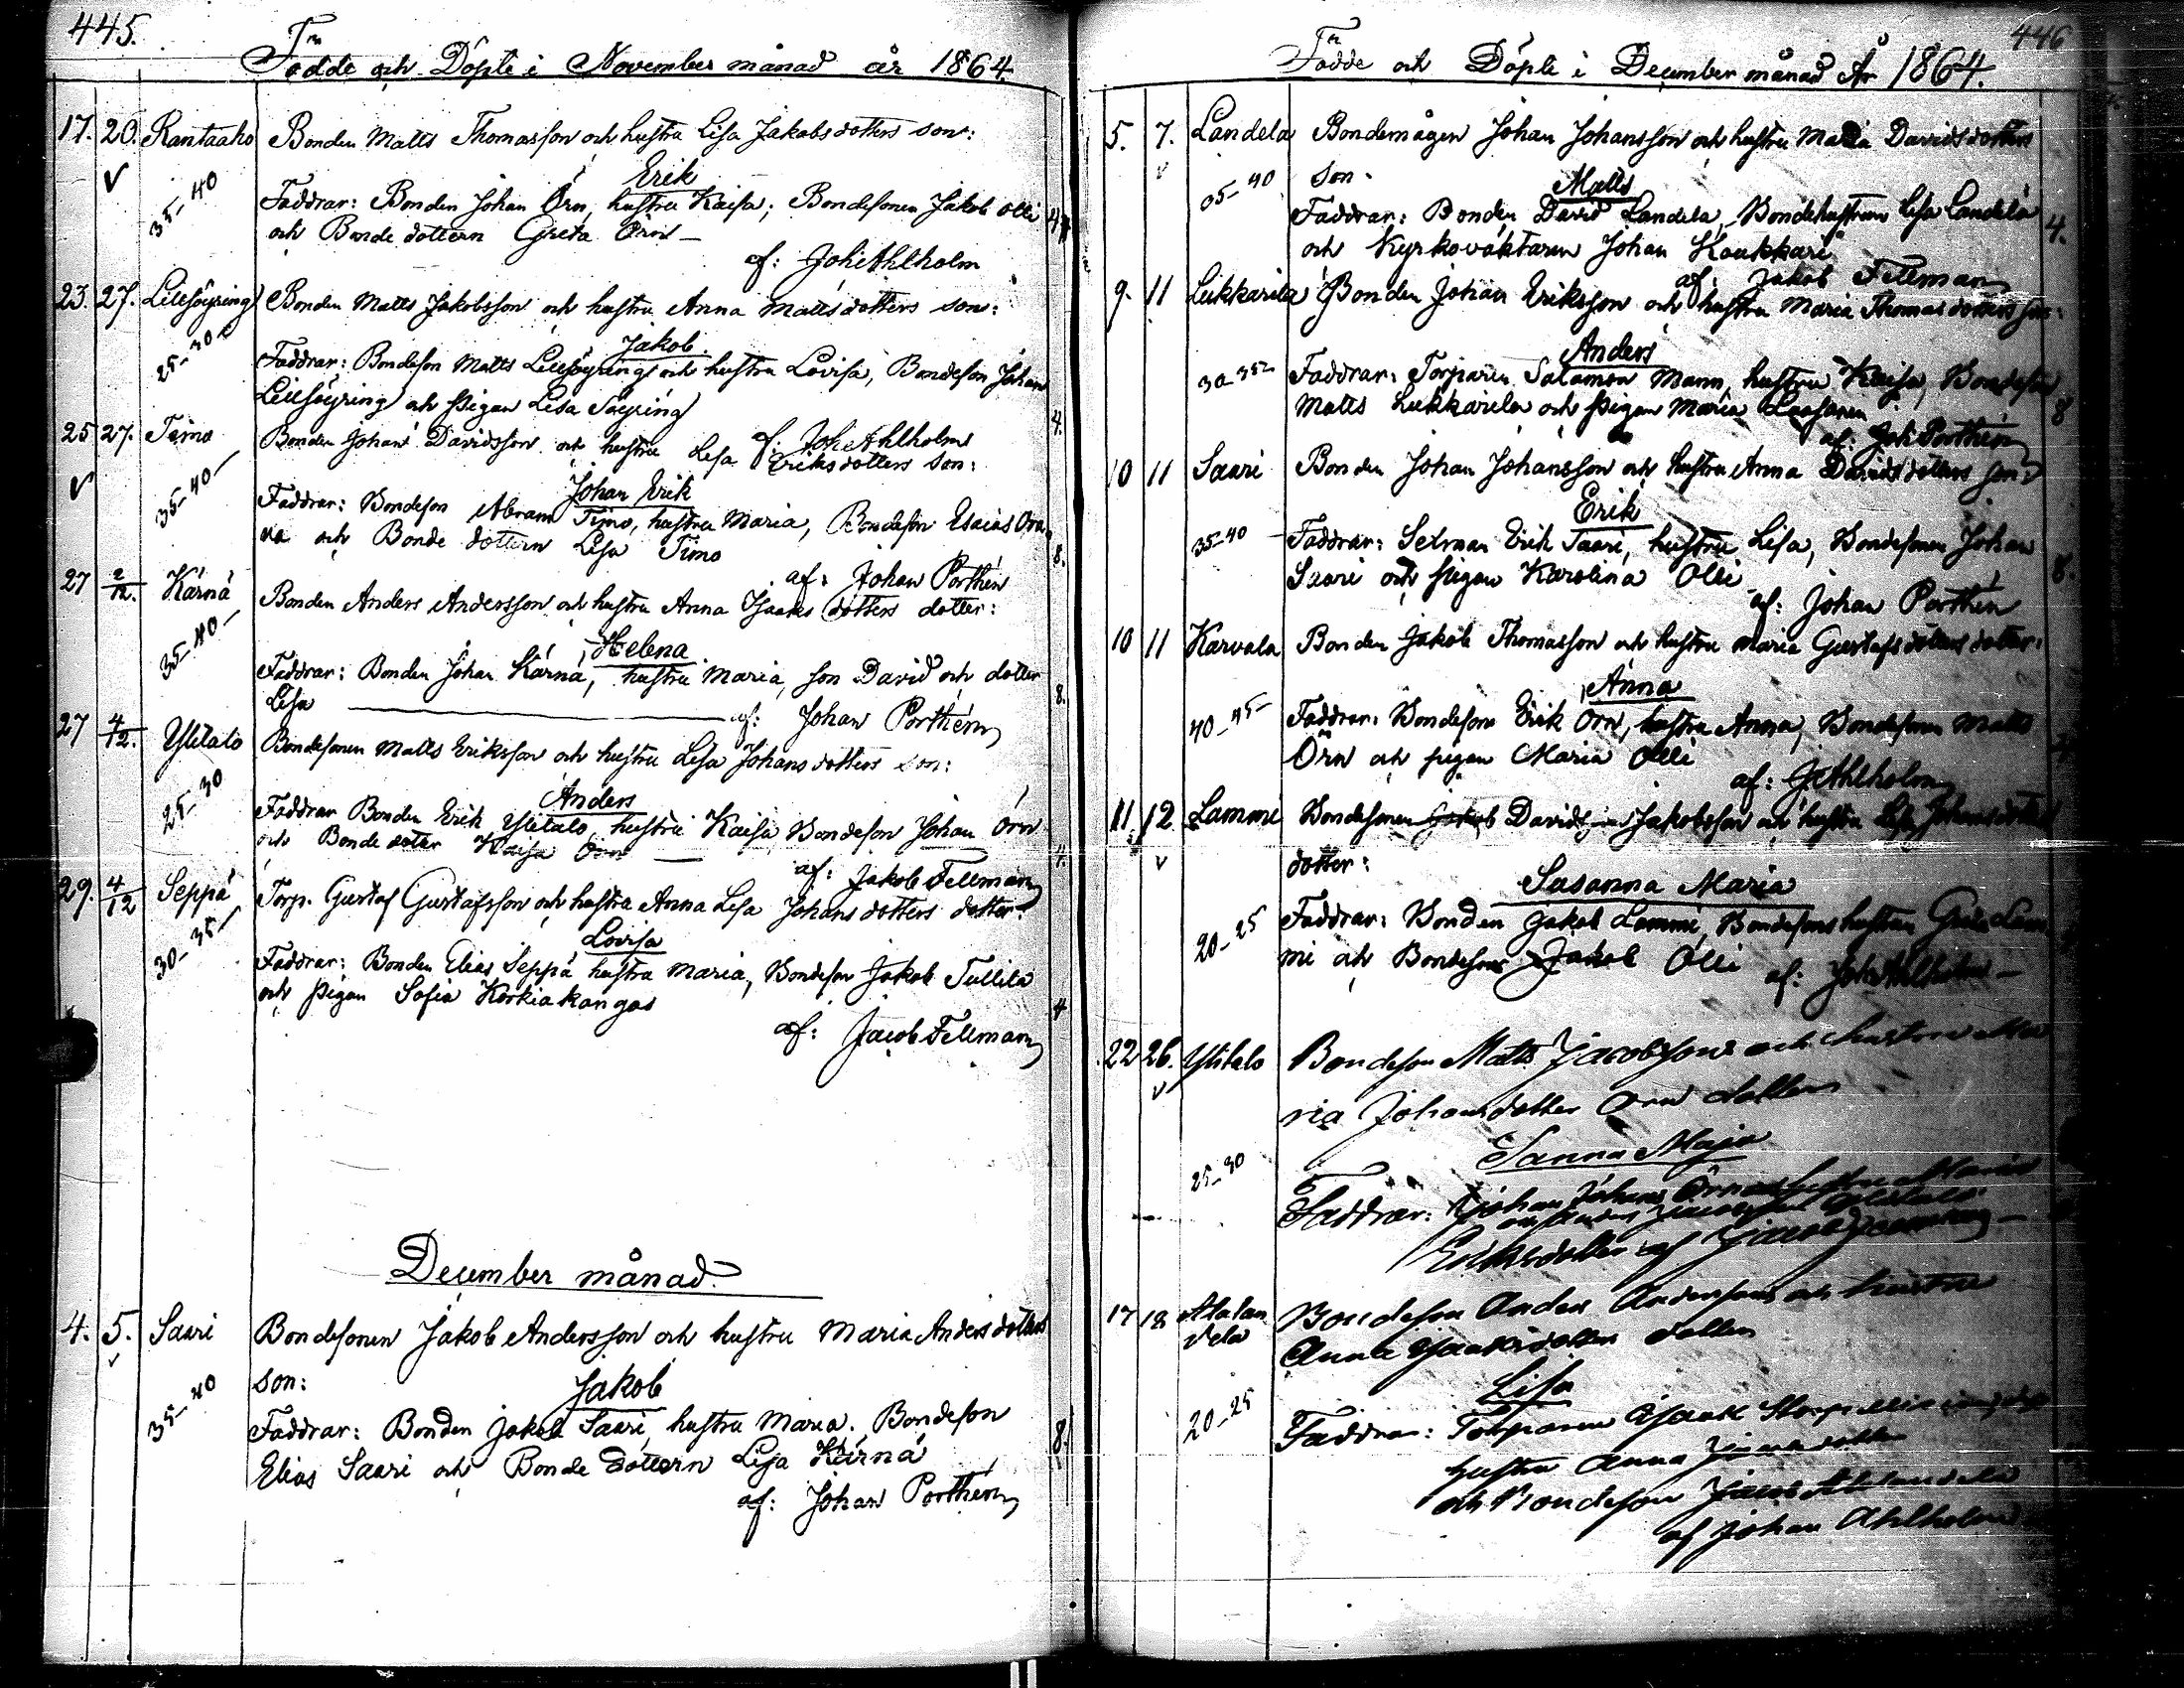 445.
Födde och Döpte i November månad år 1864
17. 20. Rantaaho Bonden Matts Thomasson och hustru Lisa Jakobsdotters son:
Erik
35-40
Faddrar: Bonden Johan Örn, hustru Kaisa; Bondesonen Jakob Olli
och Bondedottern Greta Örn — 4
af: Joh. Ahlholm
23. 27. Lillsöyring Bonden Matts Jakobsson och hustru Anna Mattsdotters son:
Jakob.
25-30
Faddrar: Bondeson Matts Lillsöyring och hustru Lovisa, Bondeson Johan
Lillsöyring och pigan Lisa Söyring 4.
af: Joh. Ahlholm
25 27. Timo Bonden Johan Davidsson och hustru Lisa Eriksdotters son:
Johan Erik
35-40-
Faddrar: Bondeson Abram Timo, hustru Maria, Bondeson Esaias Ora-
va och Bondedottern Lisa Timo 8.
af: Johan Porthén
27 2/12. Kärnä Bonden Anders Andersson och hustru Anna Isaaksdotters dotter:
Helena
35-40-
Faddrar: Bonden Johan Kärnä, hustru Maria, son David och dotter
Lisa — af: Johan Porthén 8.
27 4/12. Ylitalo Bondesonen Matts Eriksson och hustru Lisa Johansdotters son:
Anders
25-30
Faddrar Bonden Erik Ylitalo, hustru Kaisa, Bondeson Johan Örn
och Bondedoter Kaisa Örn — 4.
af: Jakob Fellman
29. 4/12 Seppä Torp. Gustaf Gustafsson och hustru Anna Lisa Johansdotters dotter:
Lovisa
30-35-
Faddrar: Bonden Elias Seppä hustru Maria, Bondeson Jakob Tullila
och pigan Sofia Korkiakangas 4
af: Jacob Fellman
December månad.
4. 5. Saari Bondesonen Jakob Andersson och hustru Maria Andersdotters
son:
Jakob
35-40
Faddrar: Bonden Jakob Saari, hustru Maria, Bondeson 8.
Elias Saari och Bondedottern Lisa Kärnä
af: Johan Porthén
446
Födde och Döpte i December månad År 1864.
5. 7. Landela Bondemågen Johan Johansson och hustru Maria Davidsdotters
son.
Matts
35-40
Faddrar: Bonden David Landela, Bondehustrun Lisa Landela 4.
och Kyrkovaktaren Johan Koukkari
af: Jakob Fellman
9. 11 Lukkarila Bonden Johan Eriksson och hustru Maria Thomasdotters son:
Anders
30-35-
Faddrar: Torparen Salomon Mann, hustru Kaisa, Bondeson
Matts Lukkarila och pigan Maria 8
af: Joh. Porthén
10 11 Saari Bonden Johan Johansson och hustru Anna Davidsdotters son:
Erik
35-40
Faddrar: Sexman Erik Saari, hustru Lisa, Bondesonen Johan
Saari och pigan Karolina Olli 8.
af: Johan Porthén
10 11 Karvala Bonden Jakob Thomasson och hustru Maria Gustafsdotters dotter:
Anna
40-45-
Faddrar: Bondeson Erik Örn, hustru Anna, Bondesonen Matts
Örn och pigan Maria Olli
af: J. Ahlholm
11 12 Lammi Bondesonen David Jakobsson och hustru Lisa Johansdotters
dotter:
Susanna Maria
20-25
Faddrar: Bonden Jakob Lammi, Bondesons hustrun Greta Lam-
mi och Bondeson Jakob Olli af: Joh. Ahlholm —
22 26. Ylitalo Bondeson Matts Jacobsson och hustru Ma
ria Johansdotter Örn dotter
Sanna Maja
25-30
Faddrar: Johan Johans Örn hustru Maria
Eriksdotter af Jacob
17 18 Alalan
dela Bondeson Anders Andersson och hustru
Anna Isaaksdotters dotter
Lisa
20-25
Faddrar: Torparen Isaak
hustru Anna
och Bondeson Jacob Alalandela
af Johan Ahlholm